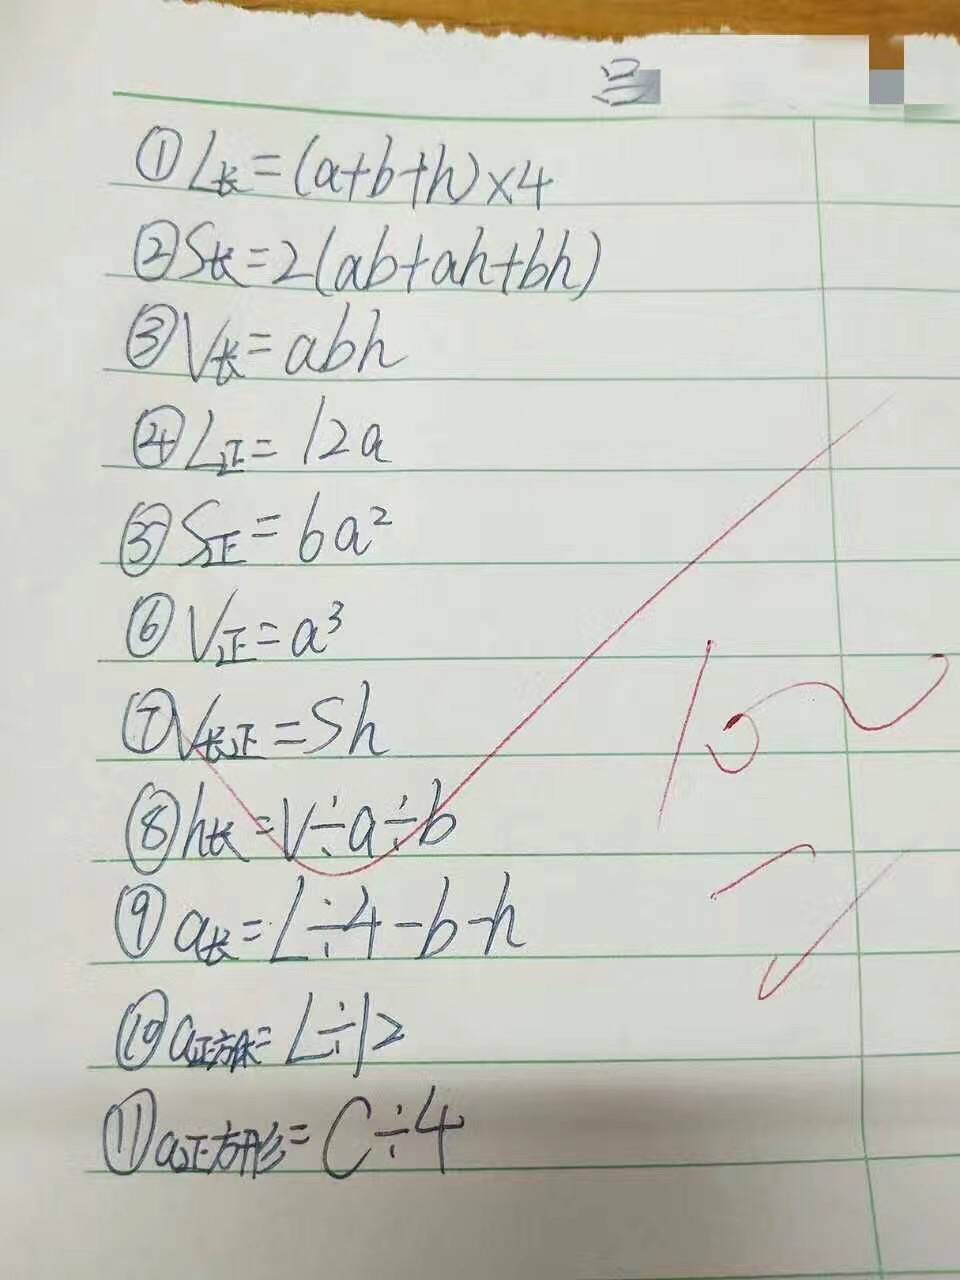 ①L长=(a+b+h)×4
②S长=2(ab+ah+bh)
③V长=abh
④L正=12a
⑤S正=6a²
⑥V正=a³
⑦V长正=Sh
⑧h长=V÷a÷b
⑨a长=L÷4-b-h
⑩a正方体=L÷12
⑪a正方形=C÷4
100